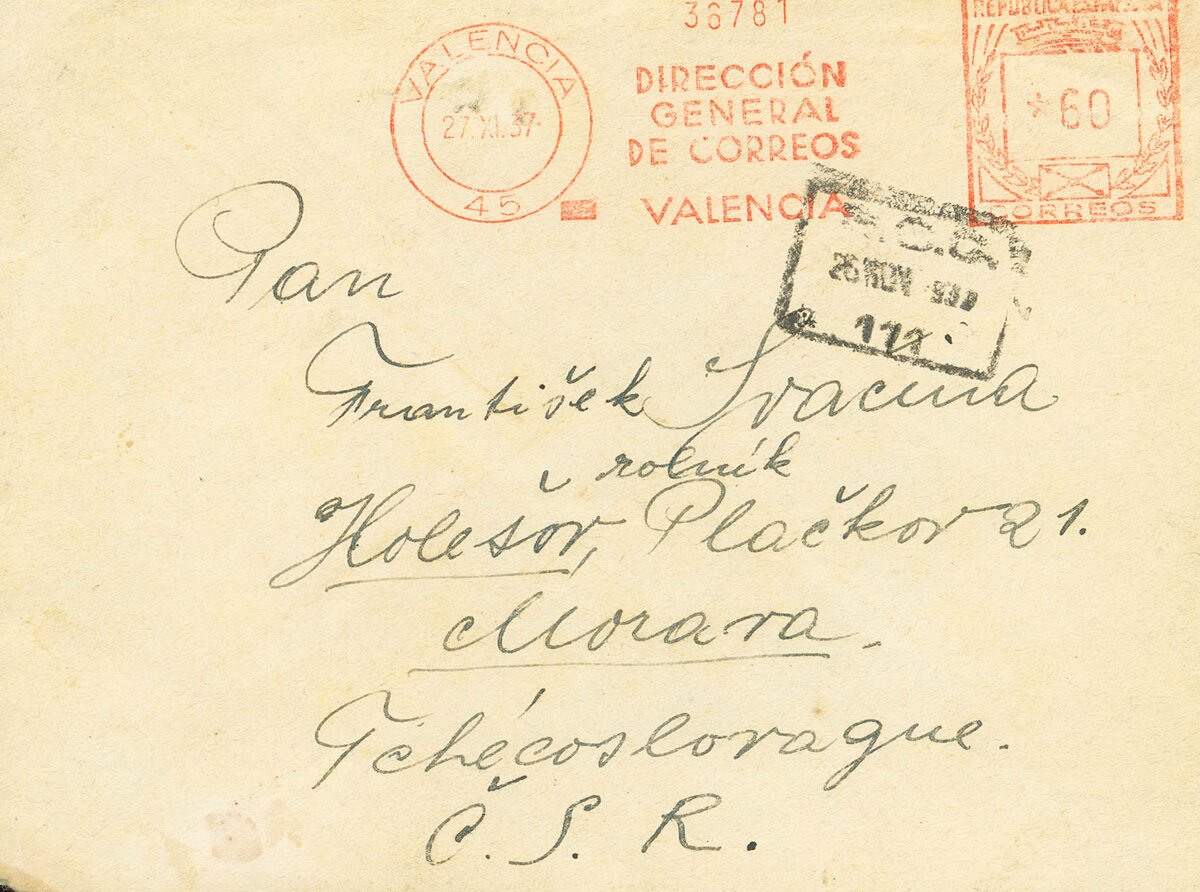 36781
REPUBLICA ESPAÑOLA
VALENCIA
27.XI.37-
45
DIRECCIÓN
GENERAL
DE CORREOS
VALENCIA
*60
CORREOS
26 NOV 937
111
Pan
František Svacina
rolník
Holešov, Plačkov 21.
Morava.
Tchécoslovaque.
Č. S. R.